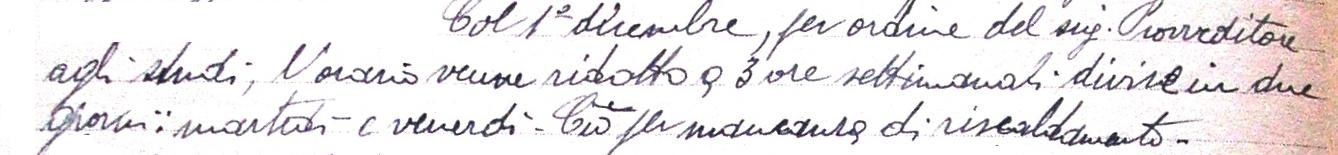 Col 1º dicembre, per ordine del sig. Provveditore
agli studi, l'orario venne ridotto a 3 ore settimanali divise in due
giorni: martedì e venerdì - Ciò per mancanza di riscaldamento -